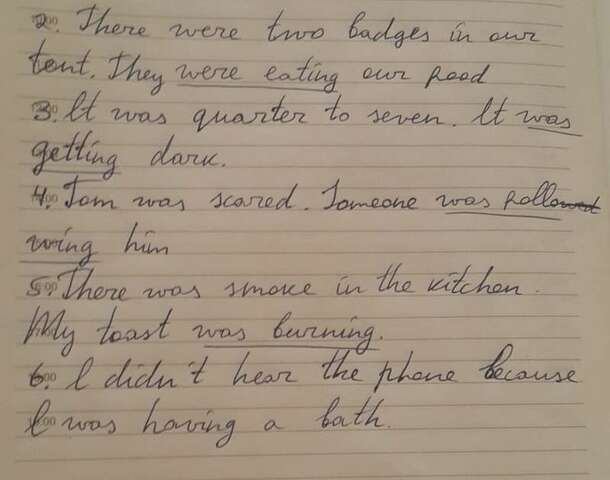 2. There were two badges in our
tent. They were eating our food
3. It was quarter to seven. It was
getting dark.
4. Tom was scared. Someone was follo
wing him
5. There was smoke in the kitchen.
My toast was burning.
6. I didn't hear the phone because
I was having a bath.